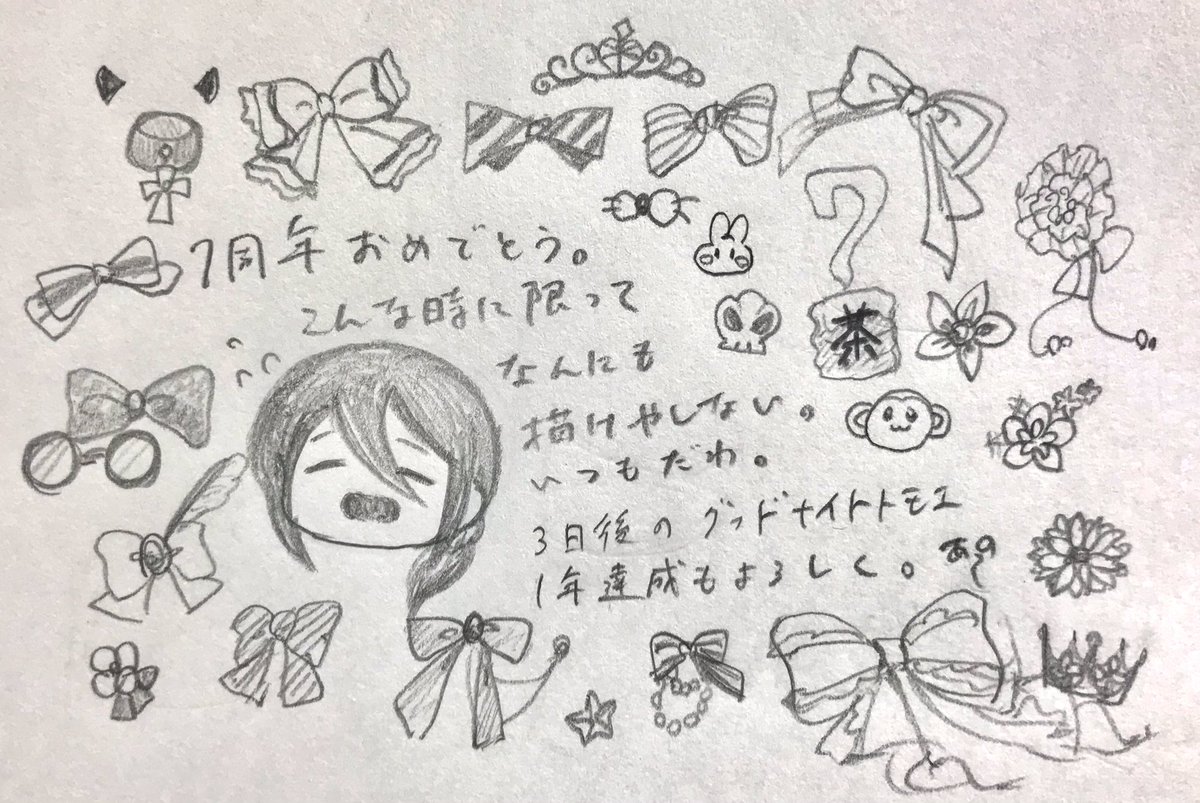 7周年おめでとう。
こんな時に限って
なんにも
描けやしない。
いつもだわ。
3日後のグッドナイトトモエ
1年達成もよろしく。
あの
?
茶